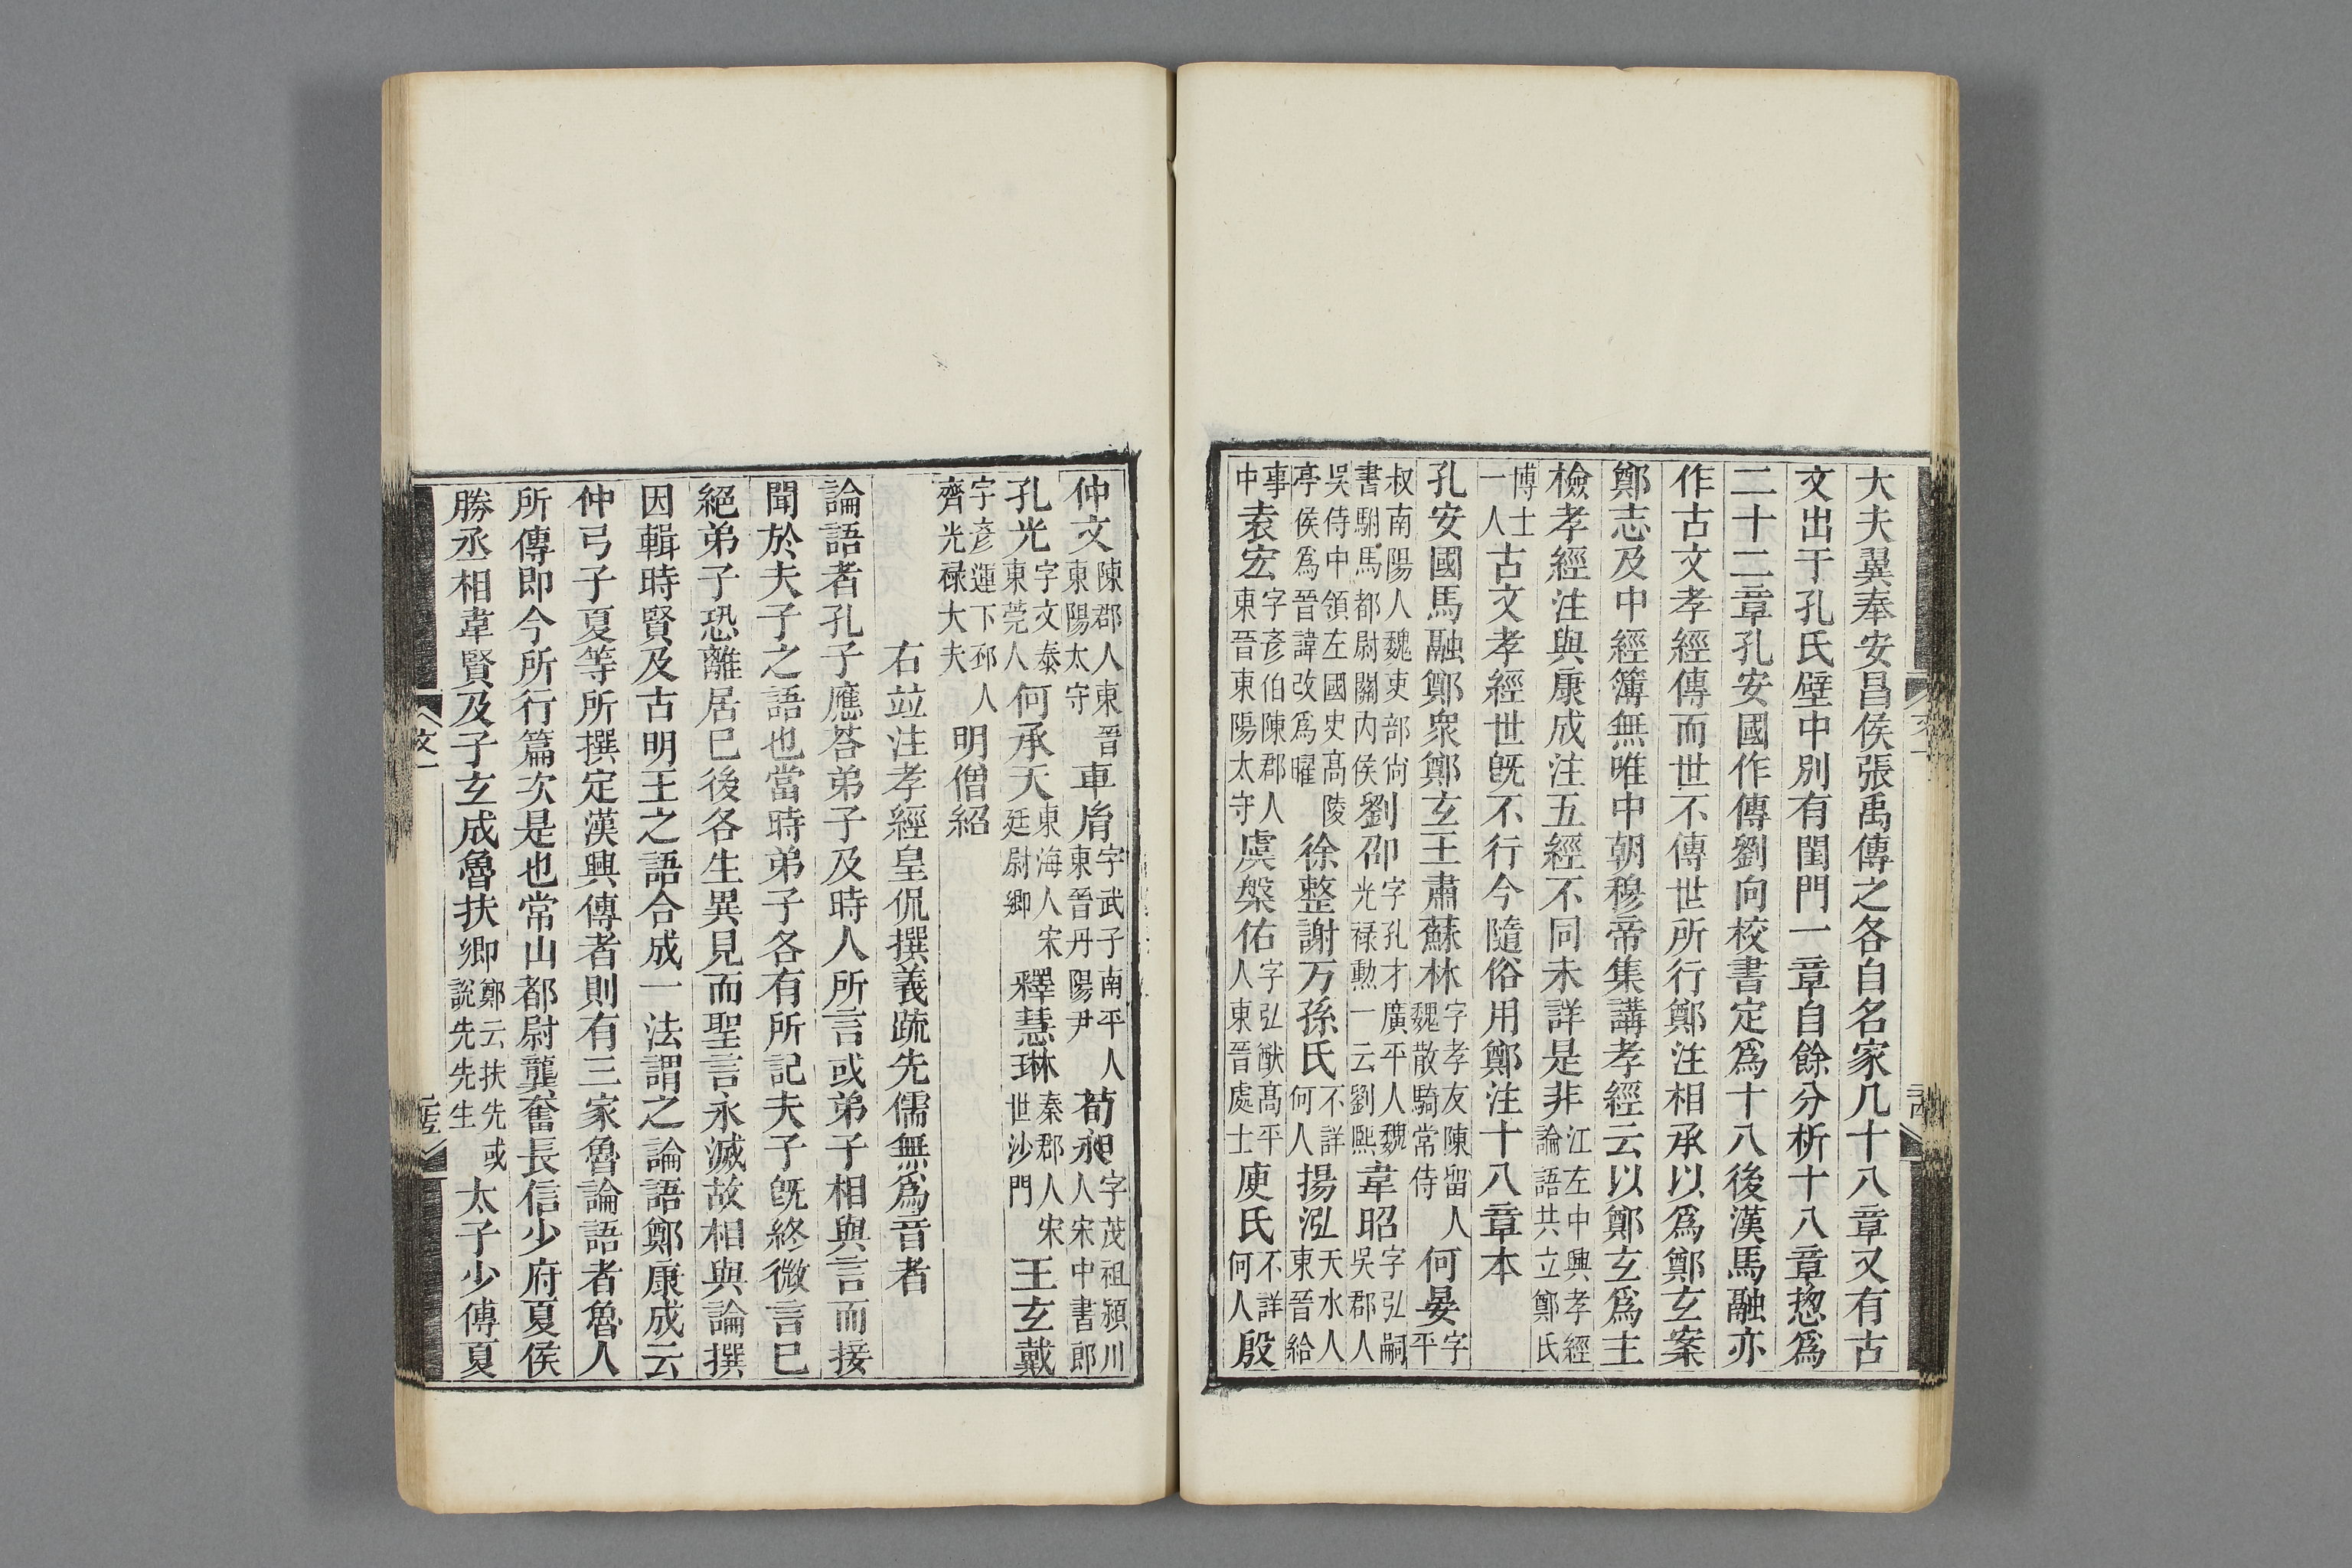 大夫翼奉安昌侯張禹傳之各自名家凡十八章又有古
文出于孔氏壁中別有閨門一章自餘分析十八章揔爲
二十二章孔安國作傳劉向校書定爲十八後漢馬融亦
作古文孝經傳而世不傳世所行鄭注相承以爲鄭玄案
鄭志及中經簿無唯中朝穆帝集講孝經云以鄭玄爲主
檢孝經注與康成注五經不同未詳是非江左中興孝經論語共立鄭氏
博士一人古文孝經世旣不行今隨俗用鄭注十八章本
孔安國馬融鄭衆鄭玄王肅蘇林字孝友陳留人魏散騎常侍何晏字平
叔南陽人魏吏部尙書駙馬都尉關內侯劉卲字孔才廣平人魏光祿勳一云劉熙韋昭字弘嗣吳郡人
吳侍中領左國史髙陵亭侯爲晉諱改爲曜徐整謝万孫氏不詳何人揚泓天水人東晉給
事中袁宏字彥伯陳郡人東晉東陽太守虞槃佑字弘猷髙平人東晉處士庾氏不詳何人殷
仲文陳郡人東晉東陽太守車胤字武子南平人東晉丹陽尹荀昶字茂祖潁川人宋中書郎
孔光字文泰東莞人何承天東海人宋廷尉卿釋慧琳秦郡人宋世沙門王玄戴
字彥運下邳人齊光祿大夫明僧紹
右竝注孝經皇侃撰義疏先儒無爲音者
論語者孔子應荅弟子及時人所言或弟子相與言而接
聞於夫子之語也當時弟子各有所記夫子旣終微言已
絕弟子恐離居已後各生異見而聖言永滅故相與論撰
因輯時賢及古明王之語合成一法謂之論語鄭康成云
仲弓子夏等所撰定漢興傳者則有三家魯論語者魯人
所傳即今所行篇次是也常山都尉龔奮長信少府夏侯
勝丞相韋賢及子玄成魯扶卿鄭云扶先或說先先生太子少傅夏